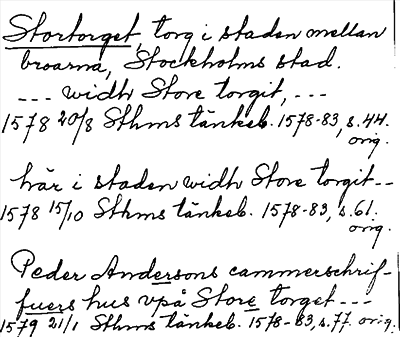 Stortorget, torg i staden mellan
broarna, Stockholms stad.
--- widh Store torgit, ---
1578 20/8 Sthms tänkeb. 1578-83, s.44.
orig.
här i staden widh Store torgit--
1578 15/10 Sthms tänkeb. 1578-83, s.61.
orig.
Peder Andersons cammerschrif-
fuers hus vpå Store torget ---
1579 21/1 Sthms tänkeb. 1578-83, s.77. orig.